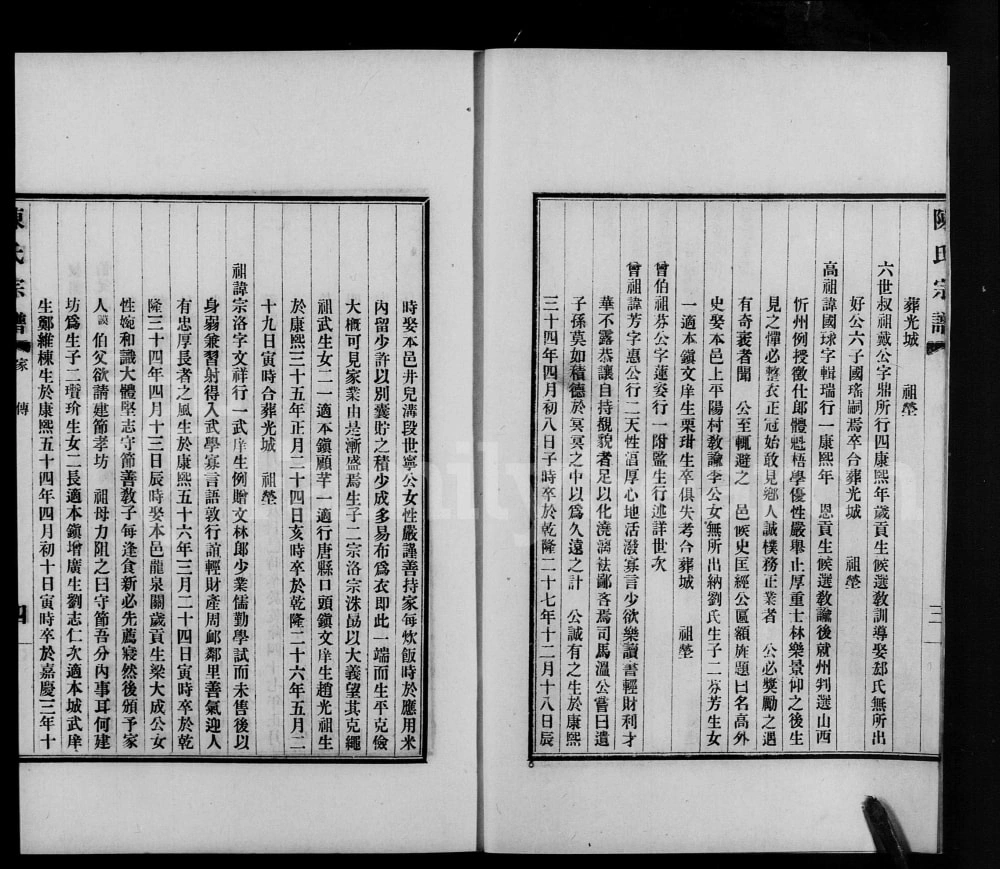 陳氏宗譜
三
葬光城　　祖塋
六世叔祖戴公字鼎所行四康熙年歲貢生候選教訓導娶郄氏無所出
好公六子國瑤嗣焉卒合葬光城　　祖塋
高祖諱國球字輯瑞行一康熙年　恩貢生候選教諭後就州判選山西
忻州例授徵仕郎體魁梧學優性嚴舉止厚重士林樂景仰之後生
見之憚必整衣正冠始敢見鄉人誠樸務正業者　公必獎勵之遇
有奇袤者聞　公至輒避之　邑候史匡經公區額旌題曰名高外
史娶本邑上平陽村教諭李公女無所出納劉氏生子二芬芳生女
一適本鎮文庠生栗玵生卒俱失考合葬城　　祖塋
曾伯祖芬公字蓮姿行一附監生行述詳世次
曾祖諱芳字惠公行二天性渾厚心地活潑寡言少欲樂讀書輕財利才
華不露恭讓自持覩貌者足以化澆漓袪鄙吝焉司馬溫公嘗曰遺
子孫莫如積德於冥冥之中以為久遠之計　公誠有之生於康熙
三十四年四月初八日子時卒於乾隆二十七年十二月十八日辰
時娶本邑井兒溝段世寧公女性嚴謹善持家每炊飯時於應用米
內留少許以別囊貯之積少成多易布為衣即此一端而生平克儉
大概可見家業由是漸盛焉生子二宗洛宗洙勗以大義望其克繩
祖武生女二一適本鎮顧苹一適行唐縣口頭鎮文庠生趙光祖生
於康熙三十五年正月二十四日亥時卒於乾隆二十六年五月二
十九日寅時合葬光城　祖塋
祖諱宗洛字文祥行一武庠生例贈文林郎少業儒勤學試而未售後以
身弱兼習射得入武學寡言語敦行誼輕財產周邮鄰里善氣迎人
有忠厚長者之風生於康熙五十六年三月二十四日寅時卒於乾
隆三十四年四月十三日辰時娶本邑龍泉關歲貢生梁大成公女
性婉和識大體堅志守節善教子每逢食新必先薦寢然後頒予家
人　伯父欲請建節孝坊　祖母力阻之曰守節吾分內事耳何建
坊為生子二瓚玠生女二長適本鎮增廣生劉志仁次適本城武庠
生鄭維棟生於康熙五十四年四月初十日寅時卒於嘉慶三年十
陳氏宗譜
家傳
四